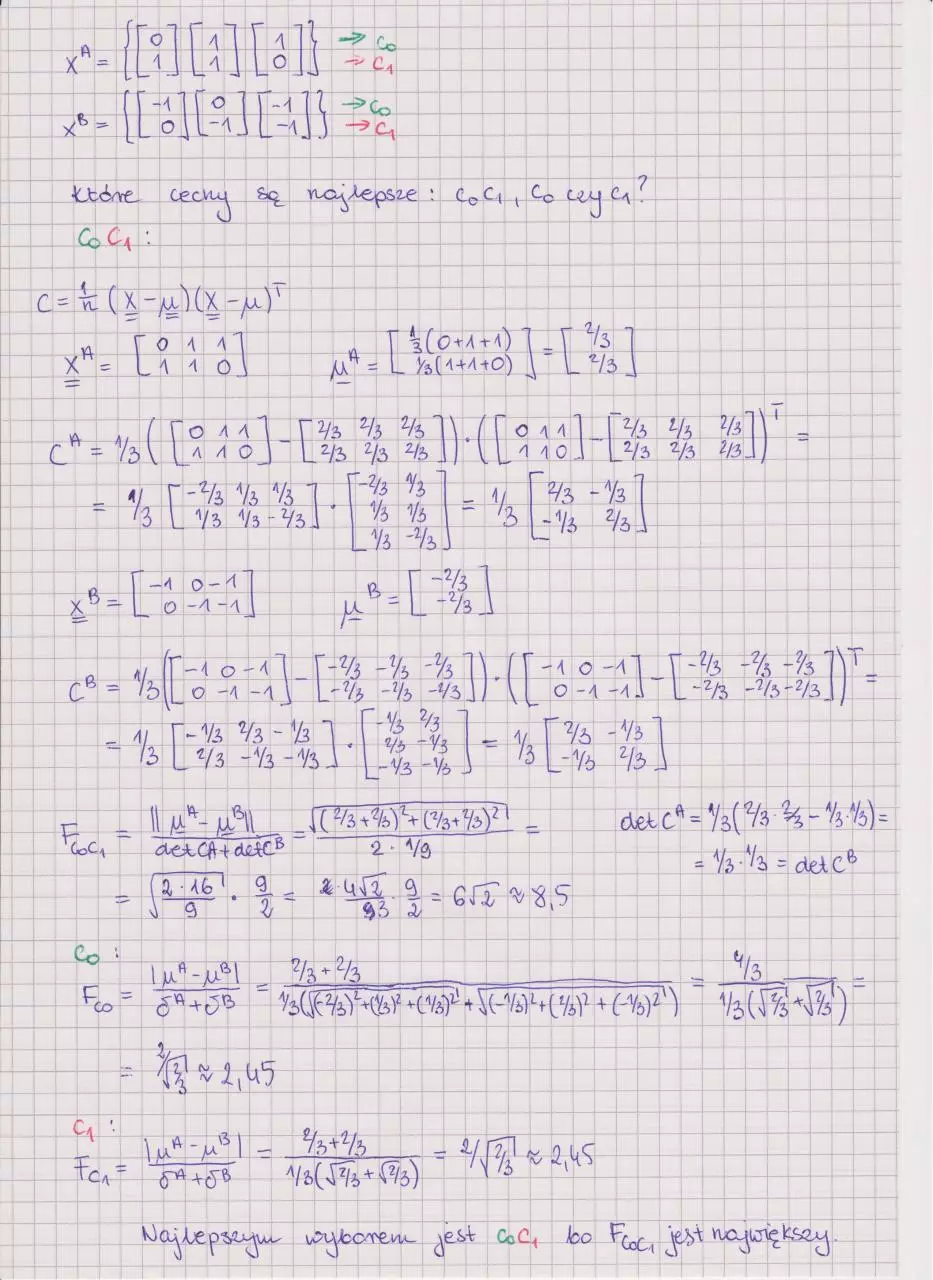 x^A = {[0 1] [1 1] [1 0]} → c0 → c1
x^B = {[-1 0] [0 -1] [-1 -1]} → c0 → c1
które cechy są najlepsze: c0c1, c0 czy c1?
c0 c1 :
C = 1/n (X - μ)(X - μ)^T
X^A = [0 1 1; 1 1 0]   μ^A = [1/3(0+1+1); 1/3(1+1+0)] = [2/3; 2/3]
C^A = 1/3 ([0 1 1; 1 1 0] - [2/3 2/3 2/3; 2/3 2/3 2/3]) · ([0 1 1; 1 1 0] - [2/3 2/3 2/3; 2/3 2/3 2/3])^T =
= 1/3 [-2/3 1/3 1/3; 1/3 1/3 -2/3] · [-2/3 1/3; 1/3 1/3; 1/3 -2/3] = 1/3 [2/3 -1/3; -1/3 2/3]
X^B = [-1 0 -1; 0 -1 -1]   μ^B = [-2/3; -2/3]
C^B = 1/3 ([-1 0 -1; 0 -1 -1] - [-2/3 -2/3 -2/3; -2/3 -2/3 -2/3]) · ([-1 0 -1; 0 -1 -1] - [-2/3 -2/3 -2/3; -2/3 -2/3 -2/3])^T =
= 1/3 [-1/3 2/3 -1/3; 2/3 -1/3 -1/3] · [-1/3 2/3; 2/3 -1/3; -1/3 -1/3] = 1/3 [2/3 -1/3; -1/3 2/3]
F_c0c1 = ||μ^A - μ^B|| / (det C^A + det C^B) = √((2/3+2/3)^2 + (2/3+2/3)^2) / (2 · 1/9) =   det C^A = 1/3(2/3 · 2/3 - 1/3 · 1/3) =
= √(2·16)/9 · 9/2 = 4√2/3 · 9/2 = 6√2 ≈ 8,5   = 1/3 · 1/3 = det C^B
c0 :
F_c0 = |μ^A - μ^B| / (σ^A + σ^B) = (2/3 + 2/3) / (1/3(√((-2/3)^2+(1/3)^2+(1/3)^2) + √((-1/3)^2+(2/3)^2+(-1/3)^2))) = (4/3) / (1/3(√2/3 + √2/3)) =
= 2/√2/3 ≈ 2,45
c1 :
F_c1 = |μ^A - μ^B| / (σ^A + σ^B) = (2/3+2/3) / (1/3(√2/3 + √2/3)) = 2/√2/3 ≈ 2,45
Najlepszym wyborem jest c0c1 bo F_c0c1 jest największy.